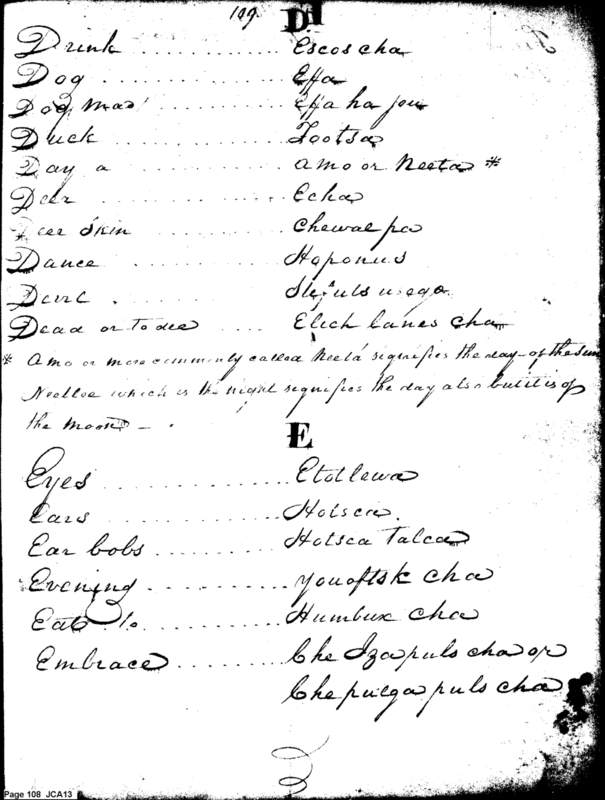 109.
D
Drink . . . . . . . . . . Escoscha
Dog . . . . . . . . . . Effa
Dog Mad . . . . . . . . . . Effa ha jou
Duck . . . . . . . . . . Footsa
Day a . . . . . . . . . . Amo or Neeta *
Deer . . . . . . . . . . Echa
Deer Skin . . . . . . . . . . Chewae pa
Dance . . . . . . . . . . Hoponus
. . . . . . . . . .
Dead or to die . . . . Elich lanes cha
* Amo or more commonly called Neeta signifies the day of the sun
which is the night signifies the day also but it is of
the Moon
E
Eyes . . . . . . . . . . Etotlewa
Ears . . . . . . . . . . Hotsca.
Ear bobs . . . . . . . . . . Hotsca Talca
Evening . . . . . . . . . . youoftsk cha
Eat to . . . . . . . . . . Humbux cha
Embrace . . . . . . . Che Izapuls cha or
Che puega puls cha
Page 108 JCA13